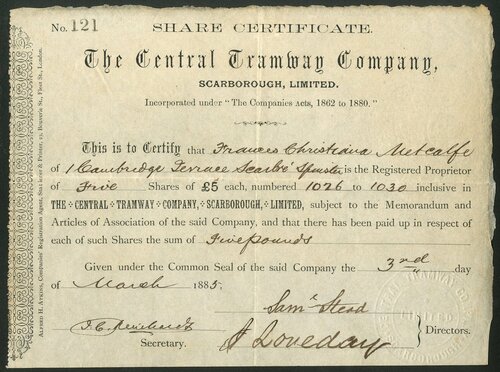 No. 121
SHARE CERTIFICATE.
The Central Tramway Company,
SCARBOROUGH, LIMITED.
Incorporated under "The Companies Acts, 1862 to 1880."
This is to Certify that Frances Christiana Metcalfe
of 1 Cambridge Terrace Scarbro' Spinster is the Registered Proprietor
of Five Shares of £5 each, numbered 1026 to 1030 inclusive in
THE CENTRAL TRAMWAY COMPANY, SCARBOROUGH, LIMITED, subject to the Memorandum and
Articles of Association of the said Company, and that there has been paid up in respect of
each of such Shares the sum of Five pounds
Given under the Common Seal of the said Company the 3rd day
of March 1885.
Saml Stead
Loveday
Directors.
Secretary.